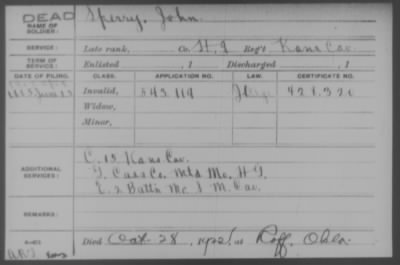 DEAD
NAME OF SOLDIER:
Sperry, John.
SERVICE:
Late rank, Co. H. G Reg't Kans Cav.
TERM OF SERVICE:
Enlisted , 1 Discharged , 1
DATE OF FILING. CLASS. APPLICATION NO. LAW. CERTIFICATE NO.
Invalid, 542.114
Widow,
Minor,
ADDITIONAL SERVICES:
C. 15 Kans Cav.
G. Cass Co. Mtd Mo. H. G.
E. 2 Batt'n Mo. S. M. Cav.
REMARKS:
Died Oct. 28, 1925, at Roff. Okla.